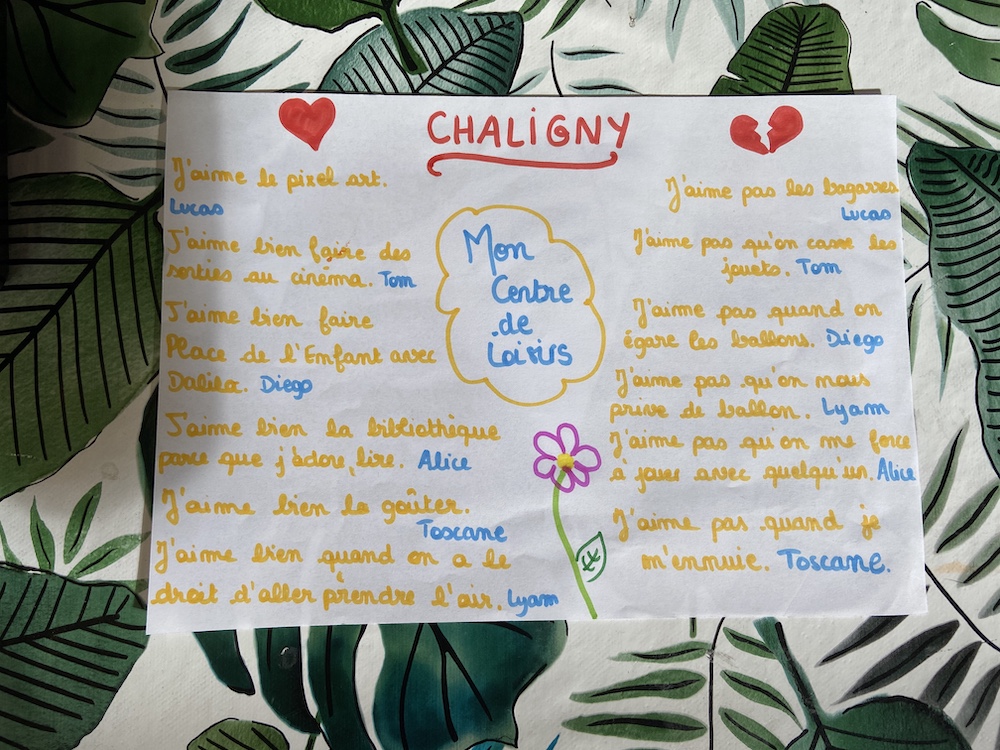 CHALIGNY
J'aime le pixel art.
Lucas
J'aime bien faire des
sorties au cinéma. Tom
J'aime bien faire
Place de l'Enfant avec
Dalila. Diego
J'aime bien la bibliothèque
parce que j'adore lire. Alice
J'aime bien le goûter.
Toscane
J'aime bien quand on a le
droit d'aller prendre l'air. Lyam
Mon
Centre
de
Loisirs
J'aime pas les bagarres
Lucas
J'aime pas qu'on casse les
jouets. Tom
J'aime pas quand on
égare les ballons. Diego
J'aime pas qu'on nous
prive de ballon. Lyam
J'aime pas qu'on me force
à jouer avec quelqu'un. Alice
J'aime pas quand je
m'ennuie. Toscane.